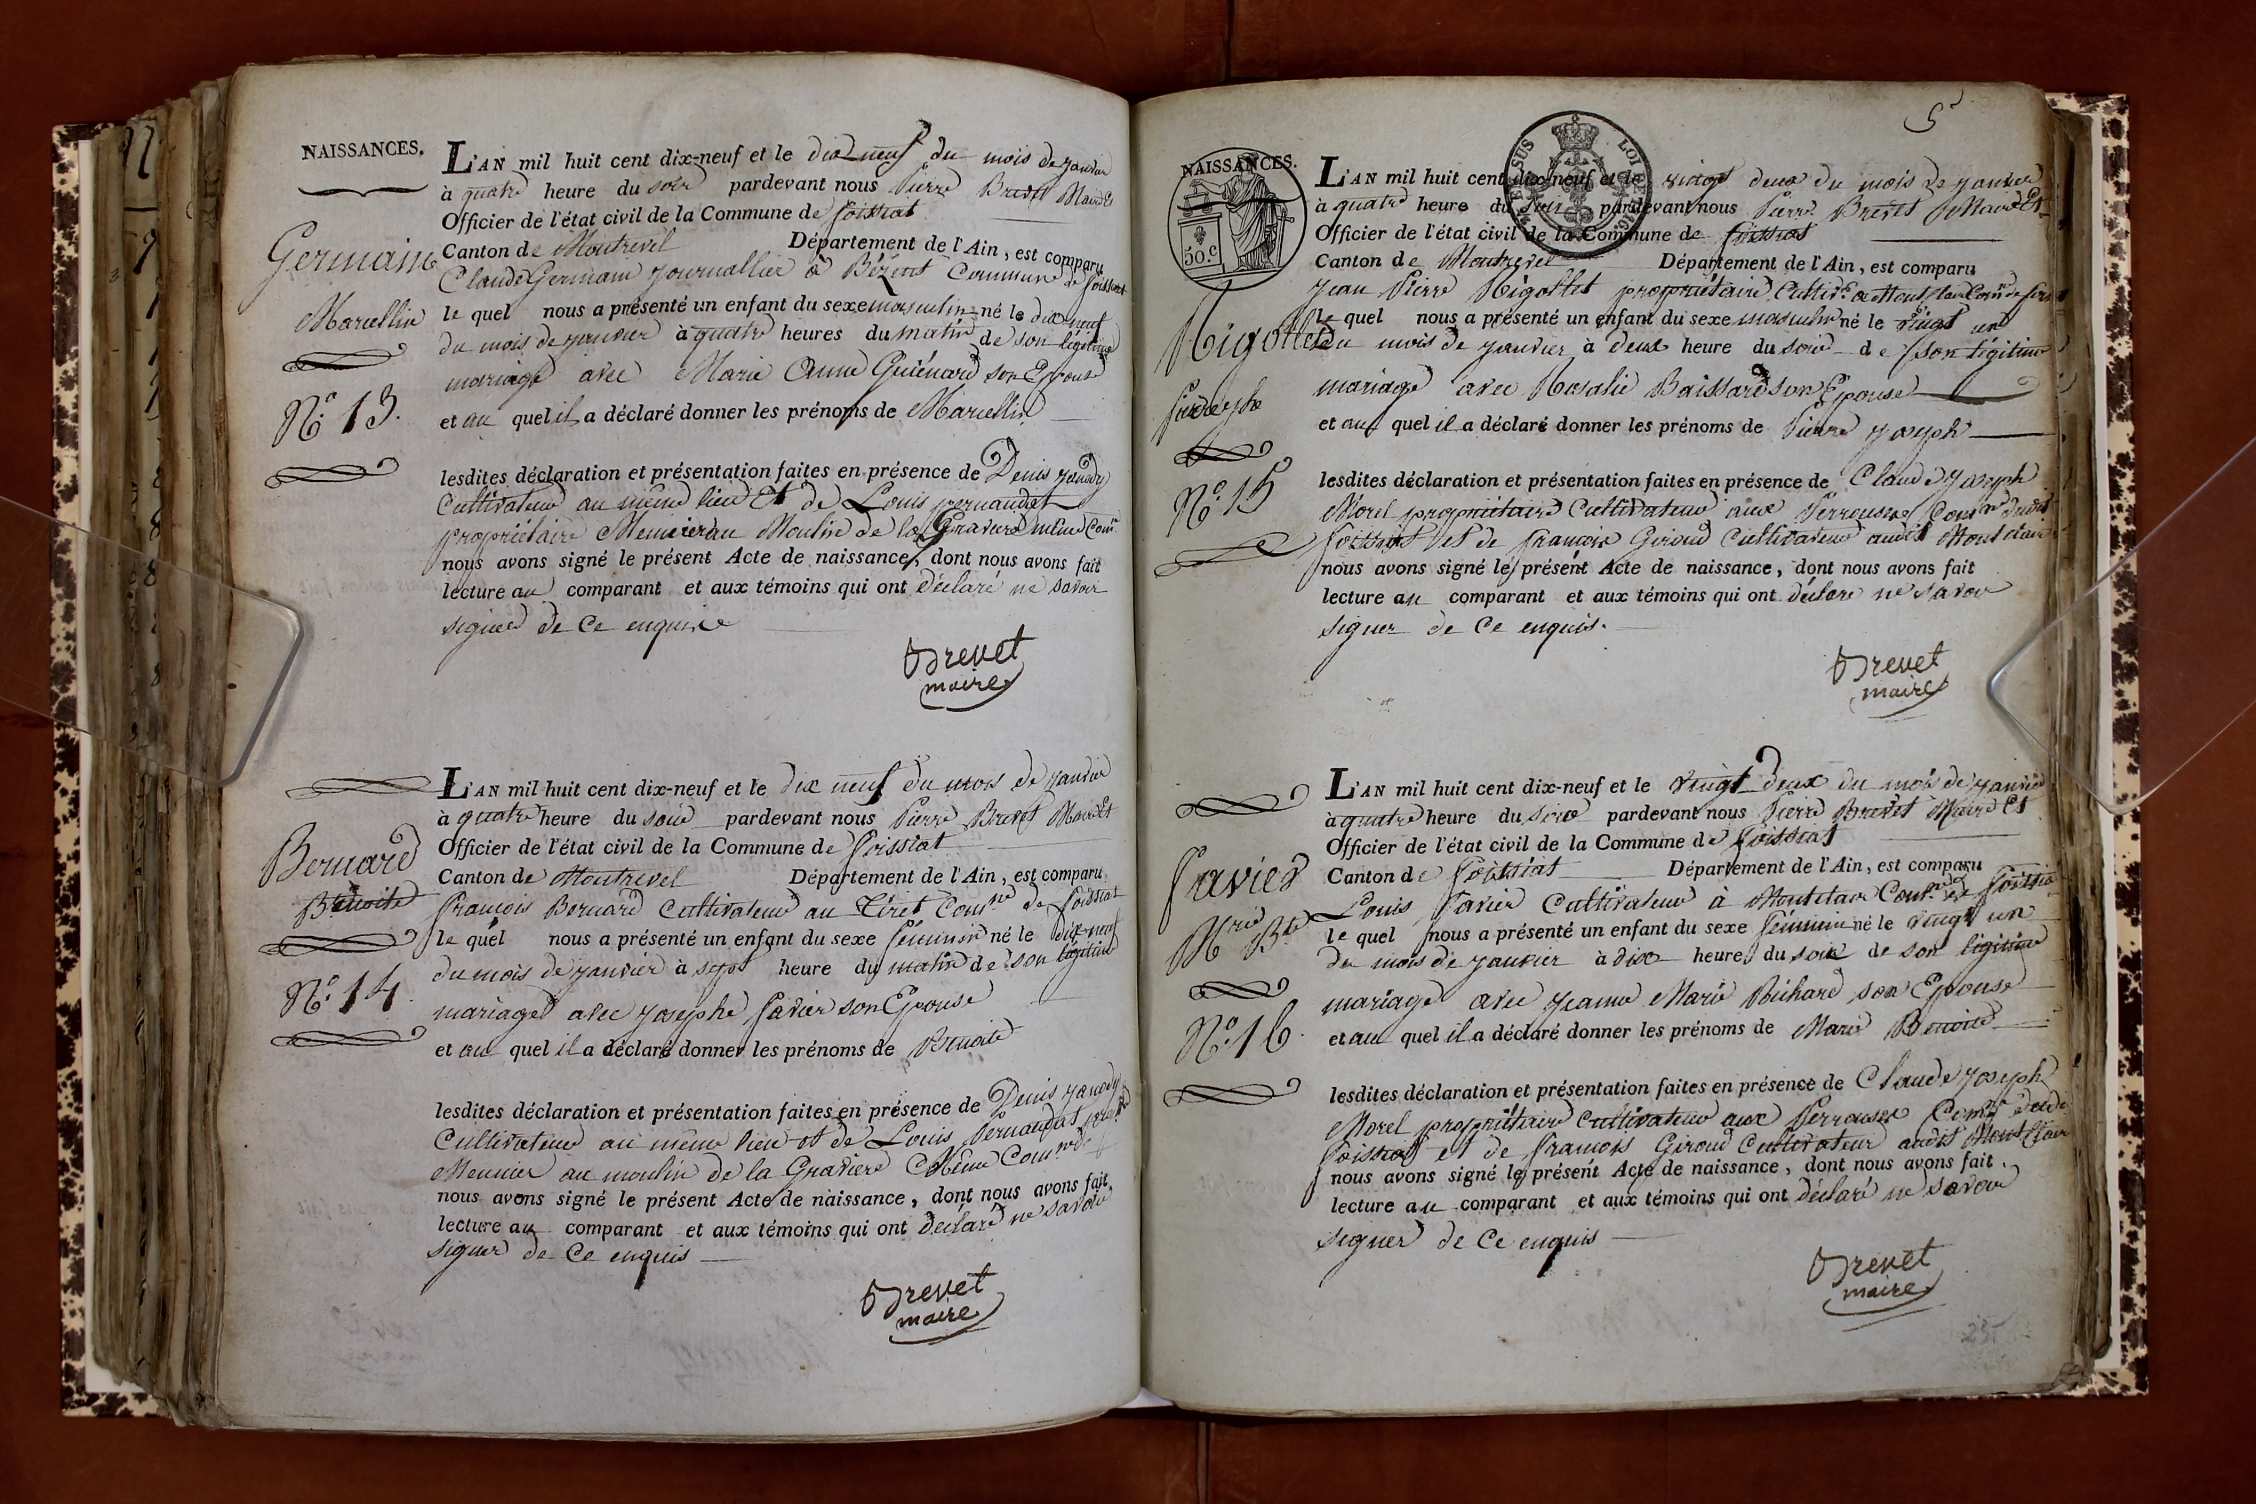 NAISSANCES.
L'AN mil huit cent dix-neuf et le dix neuf du mois de janvier
à quatre heure du soir pardevant nous Pierre Brevet Maire Et
Officier de l'état civil de la Commune de foissiat
Canton de Montrevel Département de l'Ain, est comparu
Germain
Claude Germain journallier à Béziat Commune de foissiat
le quel nous a présenté un enfant du sexe masculin né le dix neuf
Marcellin
du mois de janvier à quatre heures du matin de son légitime
mariage avec Marie Anne Guiénard son Epouse
N.° 13.
et au quel il a déclaré donner les prénoms de Marcellin
lesdites déclaration et présentation faites en présence de Denis janody
Cultivateur au même lieu Et de Louis pernaudat
propriétaire Meunier au Moulin de la Graviere même Comne
nous avons signé le présent Acte de naissance, dont nous avons fait
lecture au comparant et aux témoins qui ont déclaré ne savoir
signer de Ce enquis
Brevet
maire
L'AN mil huit cent dix-neuf et le dix neuf du mois de janvier
à quatre heure du soir pardevant nous Pierre Brevet Maire Et
Officier de l'état civil de la Commune de foissiat
Canton de Montrevel Département de l'Ain, est comparu
Bernard
Benoite
françois Bernard Cultivateur au Tiret Comne de foissiat
le quel nous a présenté un enfant du sexe féminin né le dix-neuf
du mois de janvier à sept heure du matin de son légitime
N.° 14.
mariage avec josephe favier son Epouse
et au quel il a déclaré donner les prénoms de Benoite
lesdites déclaration et présentation faites en présence de Denis janody
Cultivateur au même lieu et de Louis Pernaudat
Meunier au moulin de la Graviere Même Comne
nous avons signé le présent Acte de naissance, dont nous avons fait
lecture au comparant et aux témoins qui ont déclaré ne savoir
signer de Ce enquis
Brevet
maire
5
NAISSANCES.
50.c
L'AN mil huit cent dix-neuf et le vingt deux du mois de janvier
à quatre heure du soir pardevant nous Pierre Brevet Maire Et
Officier de l'état civil de la Commune de foissiat
Canton de Montrevel Département de l'Ain, est comparu
Jean Pierre Nigottet propriétaire Cultivr a Mont clair Comne de
le quel nous a présenté un enfant du sexe masculin né le vingt un
Nigottet
du mois de janvier à deux heure du soir de son légitime
mariage avec Rosalie Baissard son Epouse
et au quel il a déclaré donner les prénoms de Pierre joseph
lesdites déclaration et présentation faites en présence de Claude joseph
N.° 15
Morel propriétaire Cultivateur aux Perrouses Comne dudit
foissiat et de françois Giroud Cultivateur audit Mont clair
nous avons signé le présent Acte de naissance, dont nous avons fait
lecture au comparant et aux témoins qui ont déclaré ne savoir
signer de Ce enquis.
Brevet
maire
L'AN mil huit cent dix-neuf et le vingt deux du mois de janvier
à quatre heure du soir pardevant nous Pierre Brevet Maire Et
Officier de l'état civil de la Commune de foissiat
Canton de foissiat Département de l'Ain, est comparu
favier
Louis favier Cultivateur à Montclair Comne de foissiat
Mrie Bte
le quel nous a présenté un enfant du sexe féminin né le vingt un
du mois de janvier à dix heure du soir de son légitime
mariage avec jeanne Marie Richard son Epouse
N.° 16.
et au quel il a déclaré donner les prénoms de Marie Benoite
lesdites déclaration et présentation faites en présence de Claude joseph
Morel propriétaire Cultivateur aux Perrouses Comne dudit
foissiat et de françois Giroud Cultivateur audit Mont Clair
nous avons signé le présent Acte de naissance, dont nous avons fait
lecture au comparant et aux témoins qui ont déclaré ne savoir
signer de Ce enquis
Brevet
maire